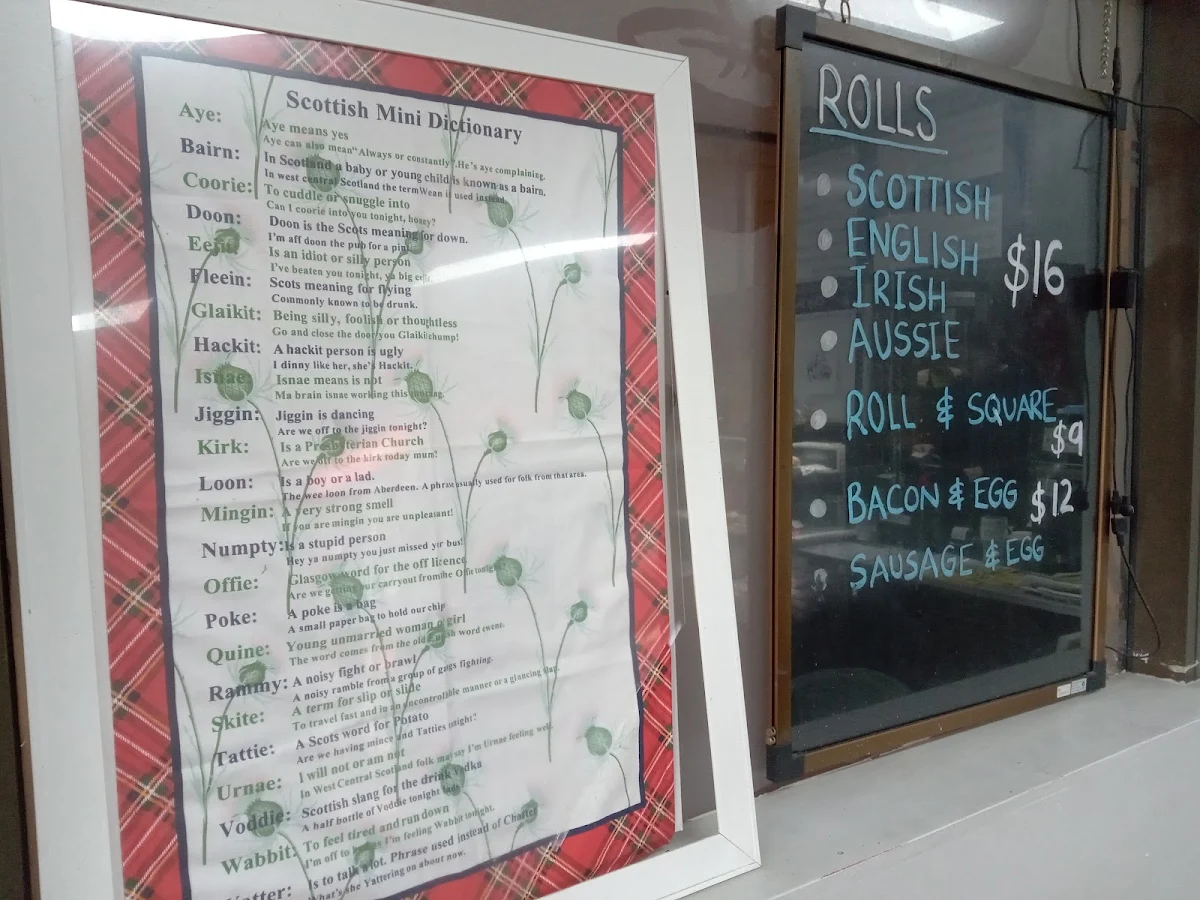 Scottish Mini Dictionary
Aye: Aye means yes
Aye can also mean "Always or constantly". He's aye complaining.
Bairn: In Scotland a baby or young child is known as a bairn.
In west central Scotland the term Wean is used instead.
Coorie: To cuddle or snuggle into
Can I coorie into you tonight, honey?
Doon: Doon is the Scots meaning for down.
I'm aff doon the pub for a pint
Eejit: Is an idiot or silly person
I've beaten you tonight, ya big
Fleein: Scots meaning for flying
Commonly known to be drunk.
Glaikit: Being silly, foolish or thoughtless
Go and close the door you Glaikit chump!
Hackit: A hackit person is ugly
I dinny like her, she's Hackit.
Isnae: Isnae means is not
Ma brain isnae working this morning.
Jiggin: Jiggin is dancing
Are we off to the jiggin tonight?
Kirk: Is a Presbyterian Church
Are we off to the kirk today mum!
Loon: Is a boy or a lad.
The wee loon from Aberdeen. A phrase usually used for folk from that area.
Mingin: A very strong smell
If you are mingin you are unpleasant!
Numpty: Is a stupid person
Hey ya numpty you just missed yir bus!
Offie: Glasgow word for the off licence
Are we getting our carryout from the Offie tonight
Poke: A poke is a bag
A small paper bag to hold our chip
Quine: Young unmarried woman girl
The word comes from the old word cwene.
Rammy: A noisy fight or brawl
A noisy ramble from a group of gegs fighting.
Skite: A term for slip or slide
To travel fast and in an uncontrollable manner or a glancing slap.
Tattie: A Scots word for Potato
Are we having mince and Tatties tonight?
Urnae: I will not or am not
In West Central Scotland folk may say I'm Urnae feeling well.
Voddie: Scottish slang for the drink Vodka
A half bottle of Voddie tonight
Wabbit: To feel tired and run down
I'm off to I'm feeling Wabbit tonight.
Yatter: Is to talk a lot. Phrase used instead of Chatter
What's she Yattering on about now.
ROLLS
SCOTTISH
ENGLISH
IRISH
AUSSIE
$16
ROLL & SQUARE
$9
BACON & EGG $12
SAUSAGE & EGG